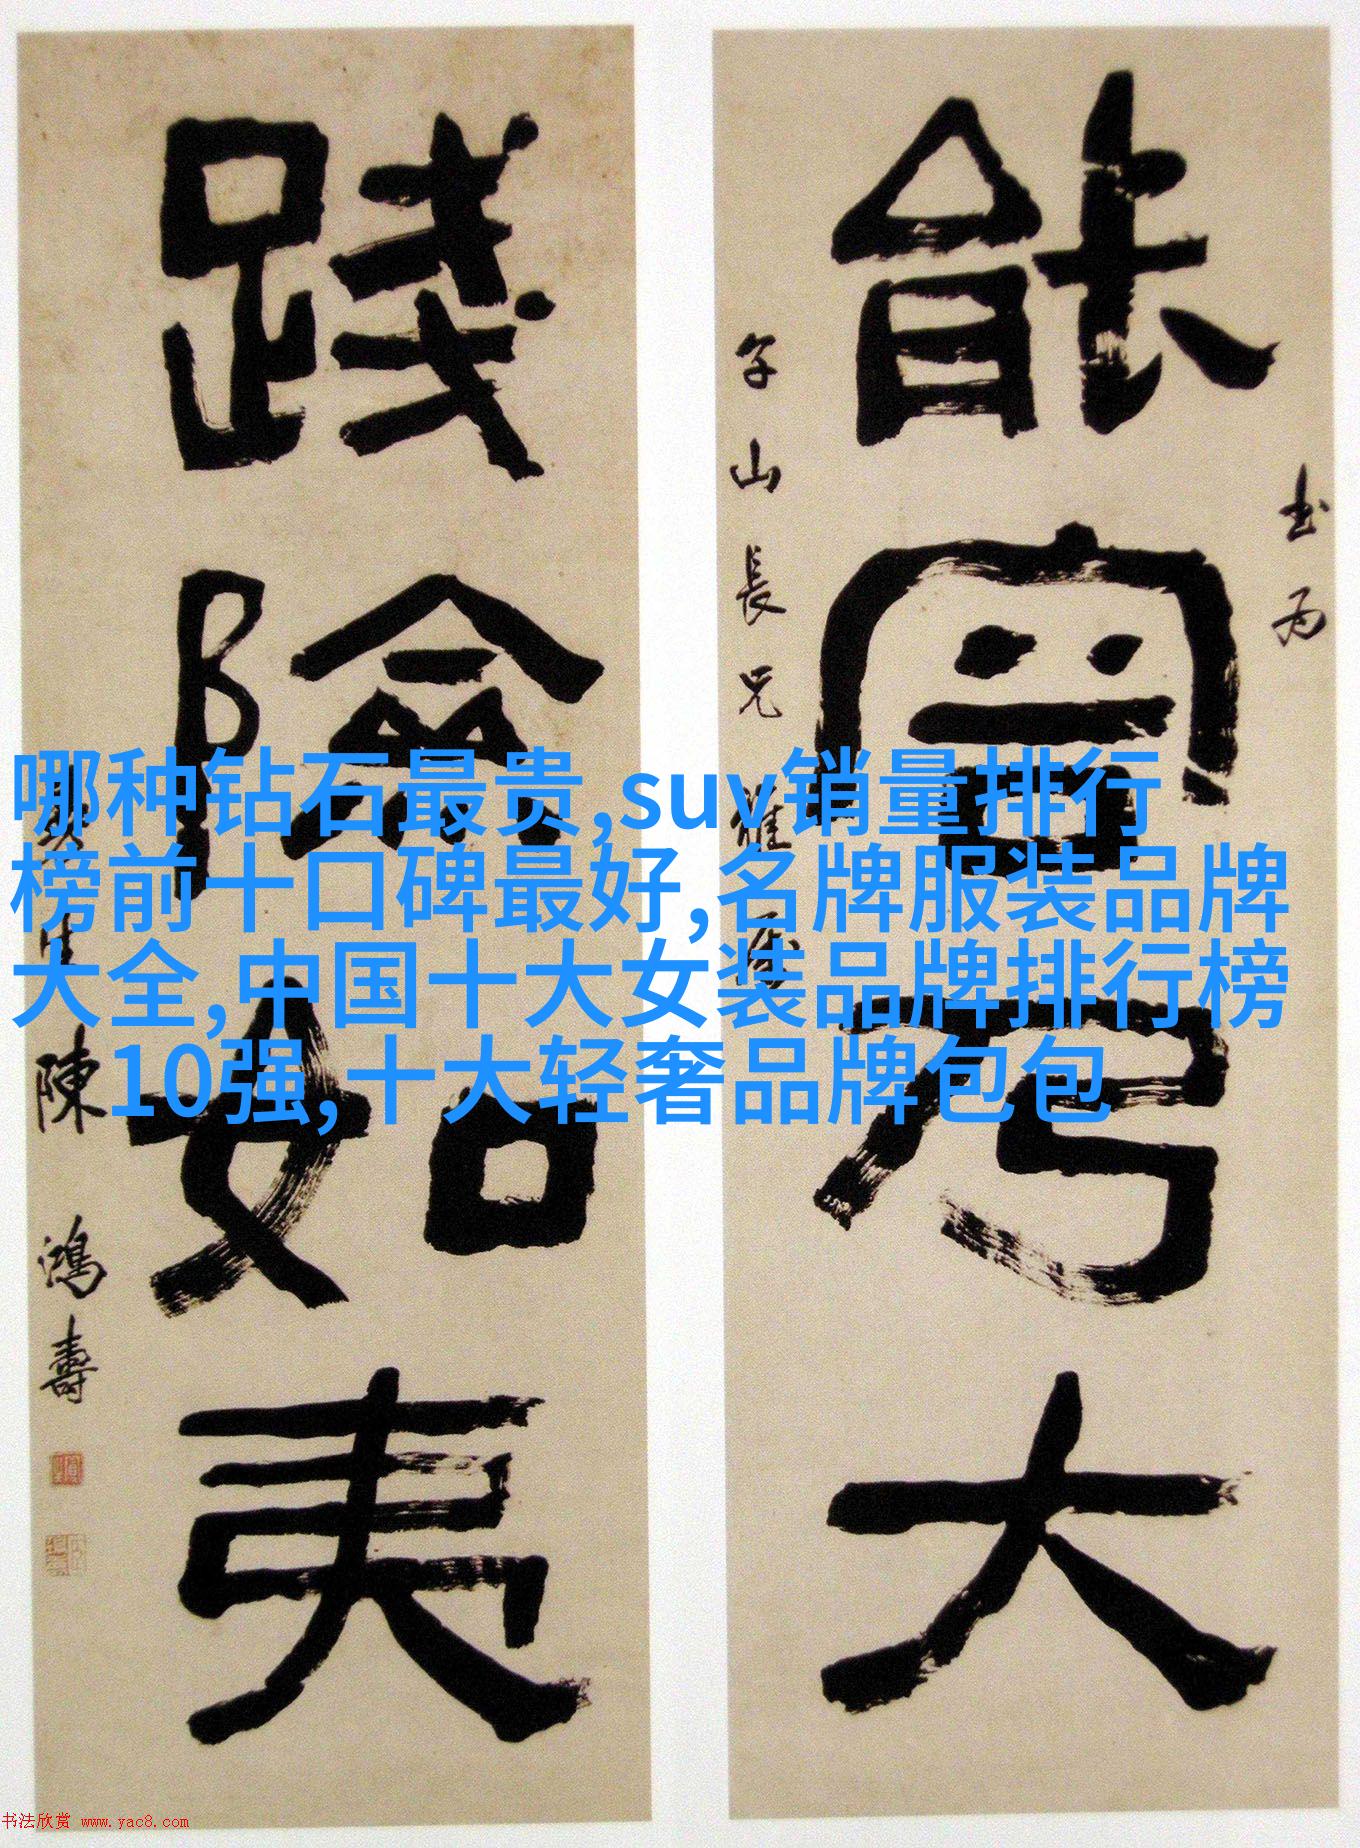 能富乃大
书为
子山长兄
雅属
踐險如夷
曼生陳鴻壽
哪种钻石最贵,suv销量排行
榜前十口碑最好,名牌服装品牌
大全,中国十大女装品牌排行榜
10强,十大轻奢品牌包包
书法欣赏 www.yac8.com